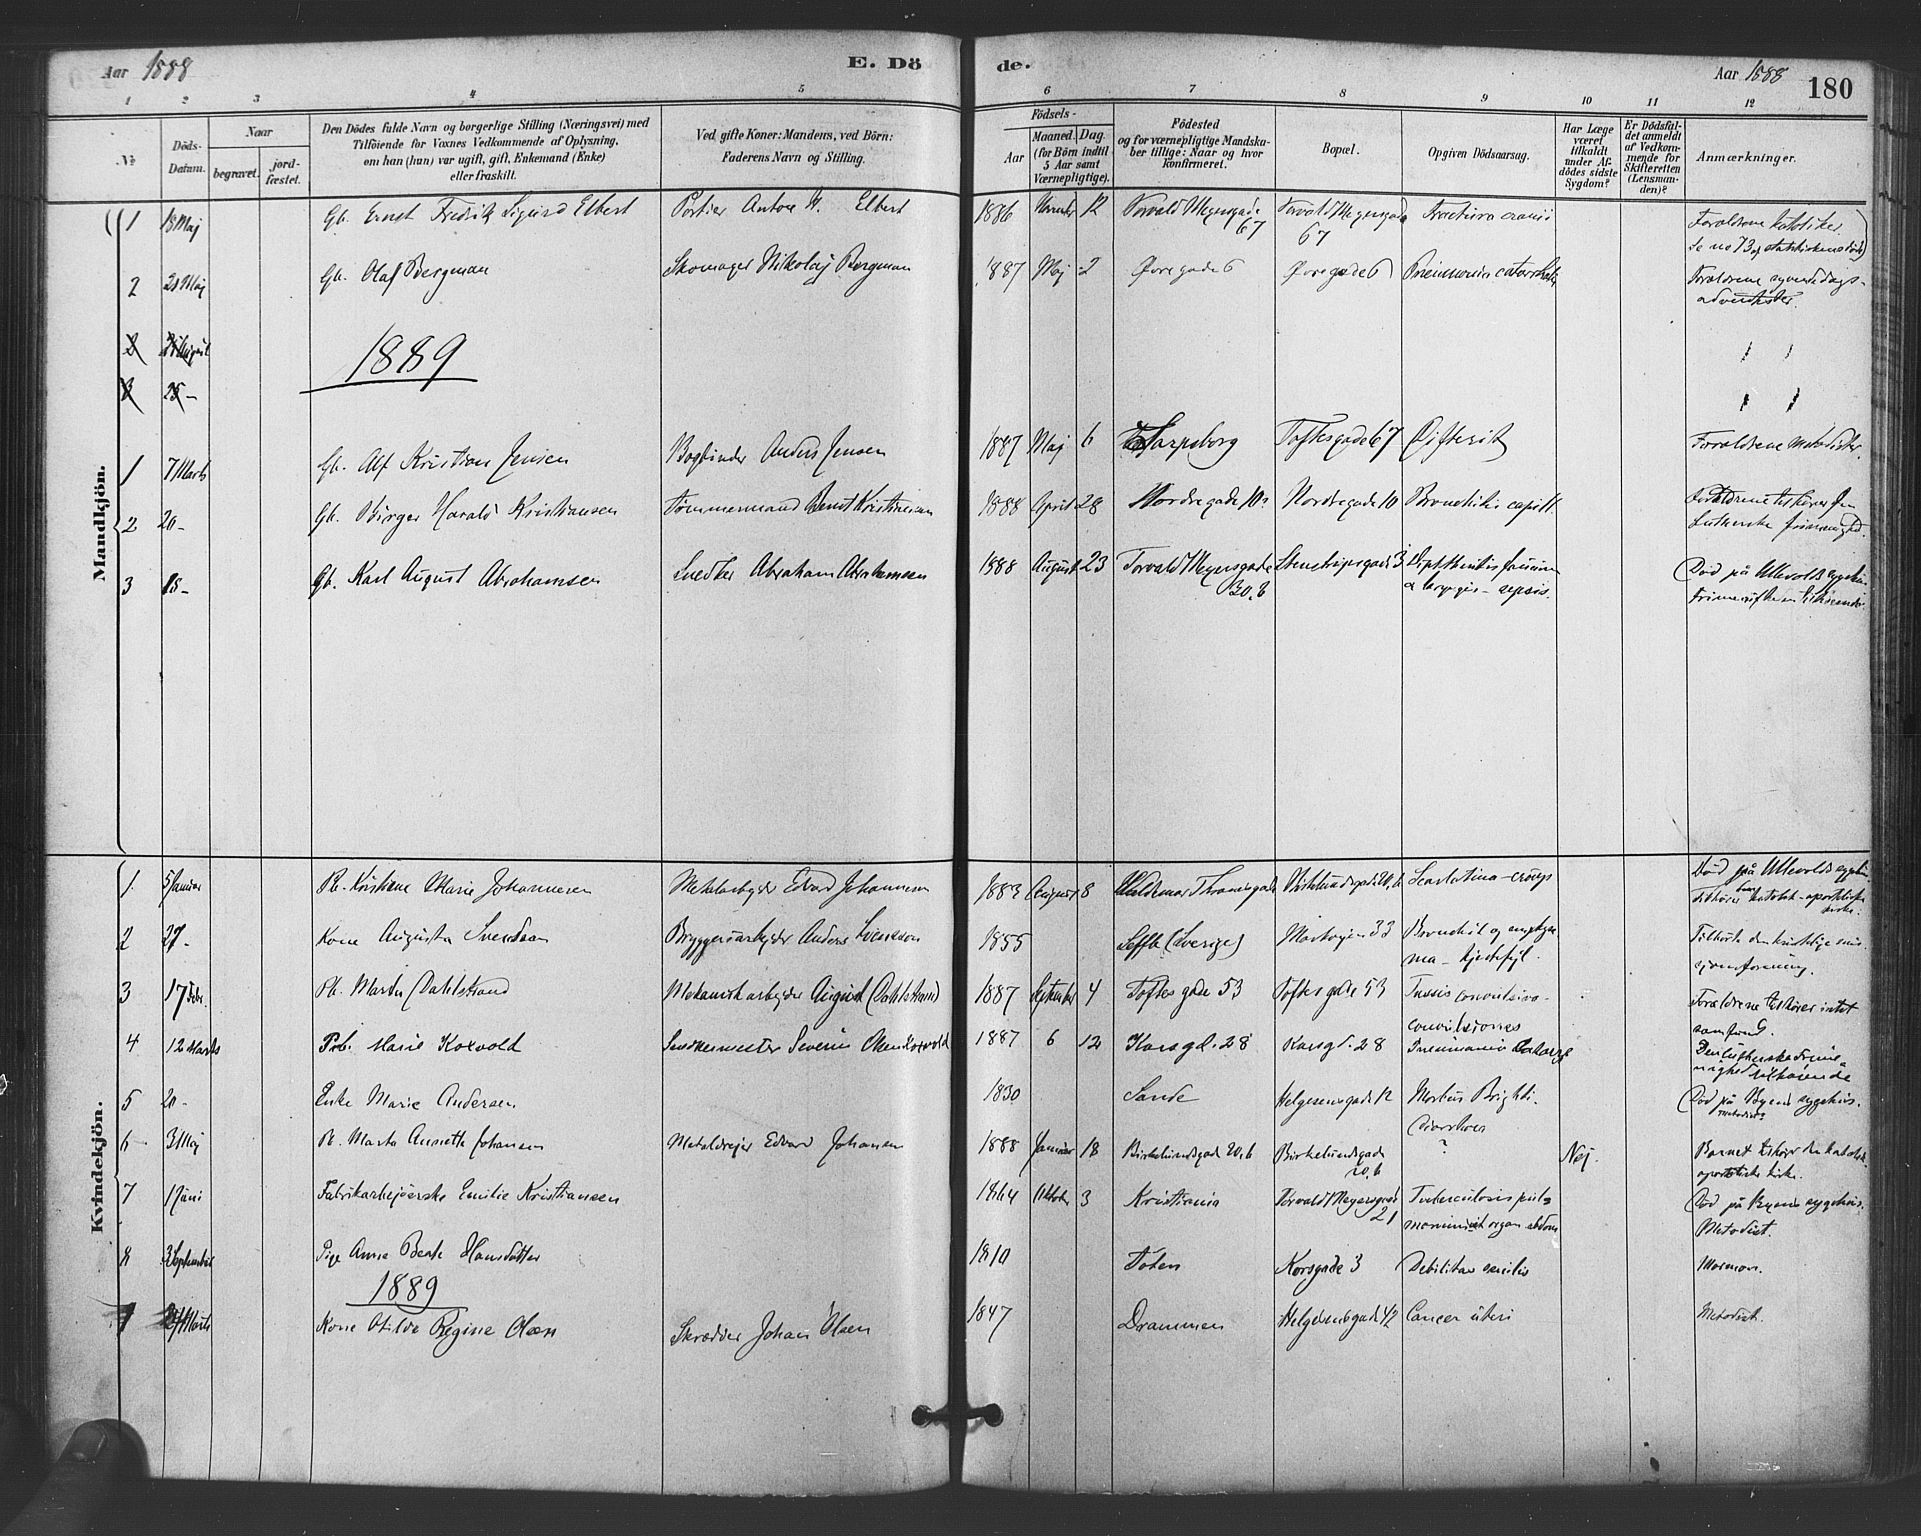 Aar 1888
E. Dö
de.
Aar 1888 180
1 2 3 4 5 6 7 8 9 10 11 12
No
Döds-Datum.
Naar
begravet.
jord-fæstet.
Den Dödes fulde Navn og borgerlige Stilling (Næringsvei) med
Tilföiende for Voxnes Vedkommende af Oplysning,
om han (hun) var ugift, gift, Enkemand (Enke)
eller fraskilt.
Ved gifte Koner: Mandens, ved Börn:
Faderens Navn og Stilling.
Födsels-
Aar
Maaned. Dag.
(for Börn indtil
5 Aar samt
Værnepligtige).
Födested
og for værnepligtige Mandska-
ber tillige: Naar og hvor
konfirmeret.
Bopæl.
Opgiven Dödsaarsag.
Har Læge
været
tilkaldt
under Af-
dödes sidste
Sygdom?
Er Dödsfal-
det anmeldt
af Vedkom-
mende for
Skifteretten
(Lensman-
den)?
Anmærkninger.
Mandkjön.
1 18 Maj Gb. Ernst Fredrik Sigurd Elbert Portier Anton M. Elbert 1886 12 Torvald Meyersgade 67 Torvald Meyersgade 67 Fractura cranii Forældrene katoliker. Se no 73
2 21 Maj Gb. Olaf Bergman Skomager Nikolaj Bergman 1887 Maj 2 Øvregade 6 Øvregade 6 Pneumonia catarrhalis Forældrene syvendedags-
adventister.
1889
25 -
1 7 Marts Gb. Alf Kristian Jensen Bogbinder Anders Jensen 1887 Maj 6 Sarpsborg Toftesgade 67 Difterit Forældrene Metodister.
2 20 - Gb. Birger Harald Kristiansen Tømmermand Bernt Kristiansen 1888 April 28 Nordregade 10 Nordregade 10 Bronchitis capill. Forældrene tilhører den
Lutherske frimenighed.
3 15 - Gb. Karl August Abrahamsen Snedker Abraham Abrahamsen 1888 August 23 Torvald Meyersgade 30, b Stenstrupsgade 3 Diphtheritis faucium
& laryngis - sepsis. Død på Ullevolds sygehus.
Kvindekjön.
1. 5 Januar Pb. Kristiane Marie Johannesen Metalarbejder Edvard Johannesen 1883 August 8 Valdemar Thranesgade Birkelundsgade 20, b Scarlatina - croup Død på Ullevolds sygehus.
tilhører katolsk-apostoliske kirke.
2 27 - Kone Augusta Svendsen Bryggeriarbejder Anders Svensson 1855 Seffle (Sverige) Mostvejen 33 Bronchit og emphyse-
ma - hjertefejl. Tilhørte den kristelige mis-
sjonsforening.
3 17 Febr. Pb. Marta Dahlstrand Mekanisk arbejder August Dahlstrand 1887 September 4 Toftesgade 53 Toftesgade 53 Tussis convulsiva -
convulsiones Forældrene tilhører intet
samfund.
4 12 Marts Pb. Marie Koxvold Snedkermester Severin Olsen Koxvold 1887 6 12 Korsgd. 28 Korsgd. 28 Pneumonia Catarrh. Den lutherske frime-
nighed tilhørende
5 20 - Enke Marie Andersen 1830 Sande Helgesensgade 12 Morbus Brighti. Diarrhoea Død på Byens sygehus. Metodist
6 3 Maj Pb. Marta Annette Johansen Metaldrejer Edvard Johansen 1888 Januar 18 Birkelundsgade 20, b Birkelundsgade 20, b ? Nej. Barnet tilhører den katolsk
apostoliske kirke.
7 1 Juni Fabrikarbejderske Emilie Kristiansen 1864 Oktober 3 Kristiania Torvald Meyersgade 21 Tuberculosis pul-
monum et organ. abdom. Død på Byens sygehus.
Metodist.
8 3 September Pige Anne Beate Hansdatter 1810 Toten Korsgade 3 Debilitas senilis Mormon.
1889
1 Marts Kone Otilde Regine Olsen Skrædder Johan Olsen 1847 Drammen Helgesensgade 42 Cancer uteri Metodist.